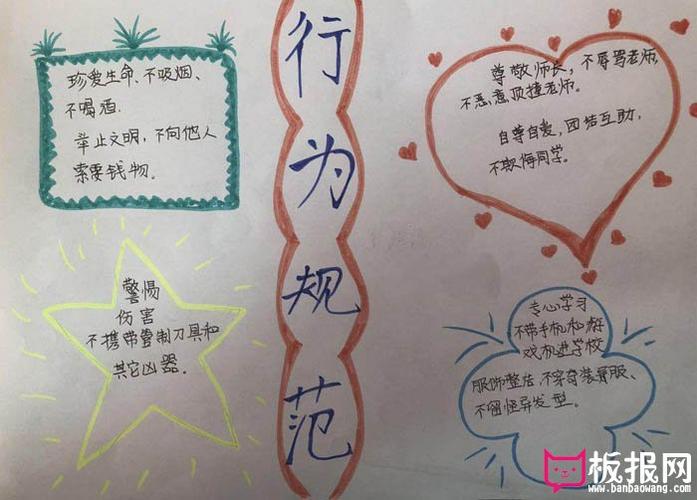 行为规范
珍爱生命、不吸烟、
不喝酒。
举止文明，不向他人
索要钱物。
尊敬师长，不辱骂老师，
不恶意顶撞老师。
自尊自爱，团结互助，
不欺侮同学。
警惕
伤害
不携带管制刀具和
其它凶器．
专心学习
不带手机和游
戏机进学校
服饰整洁，不穿奇装异服、
不留怪异发型。
板报网
www.banbaowang.com